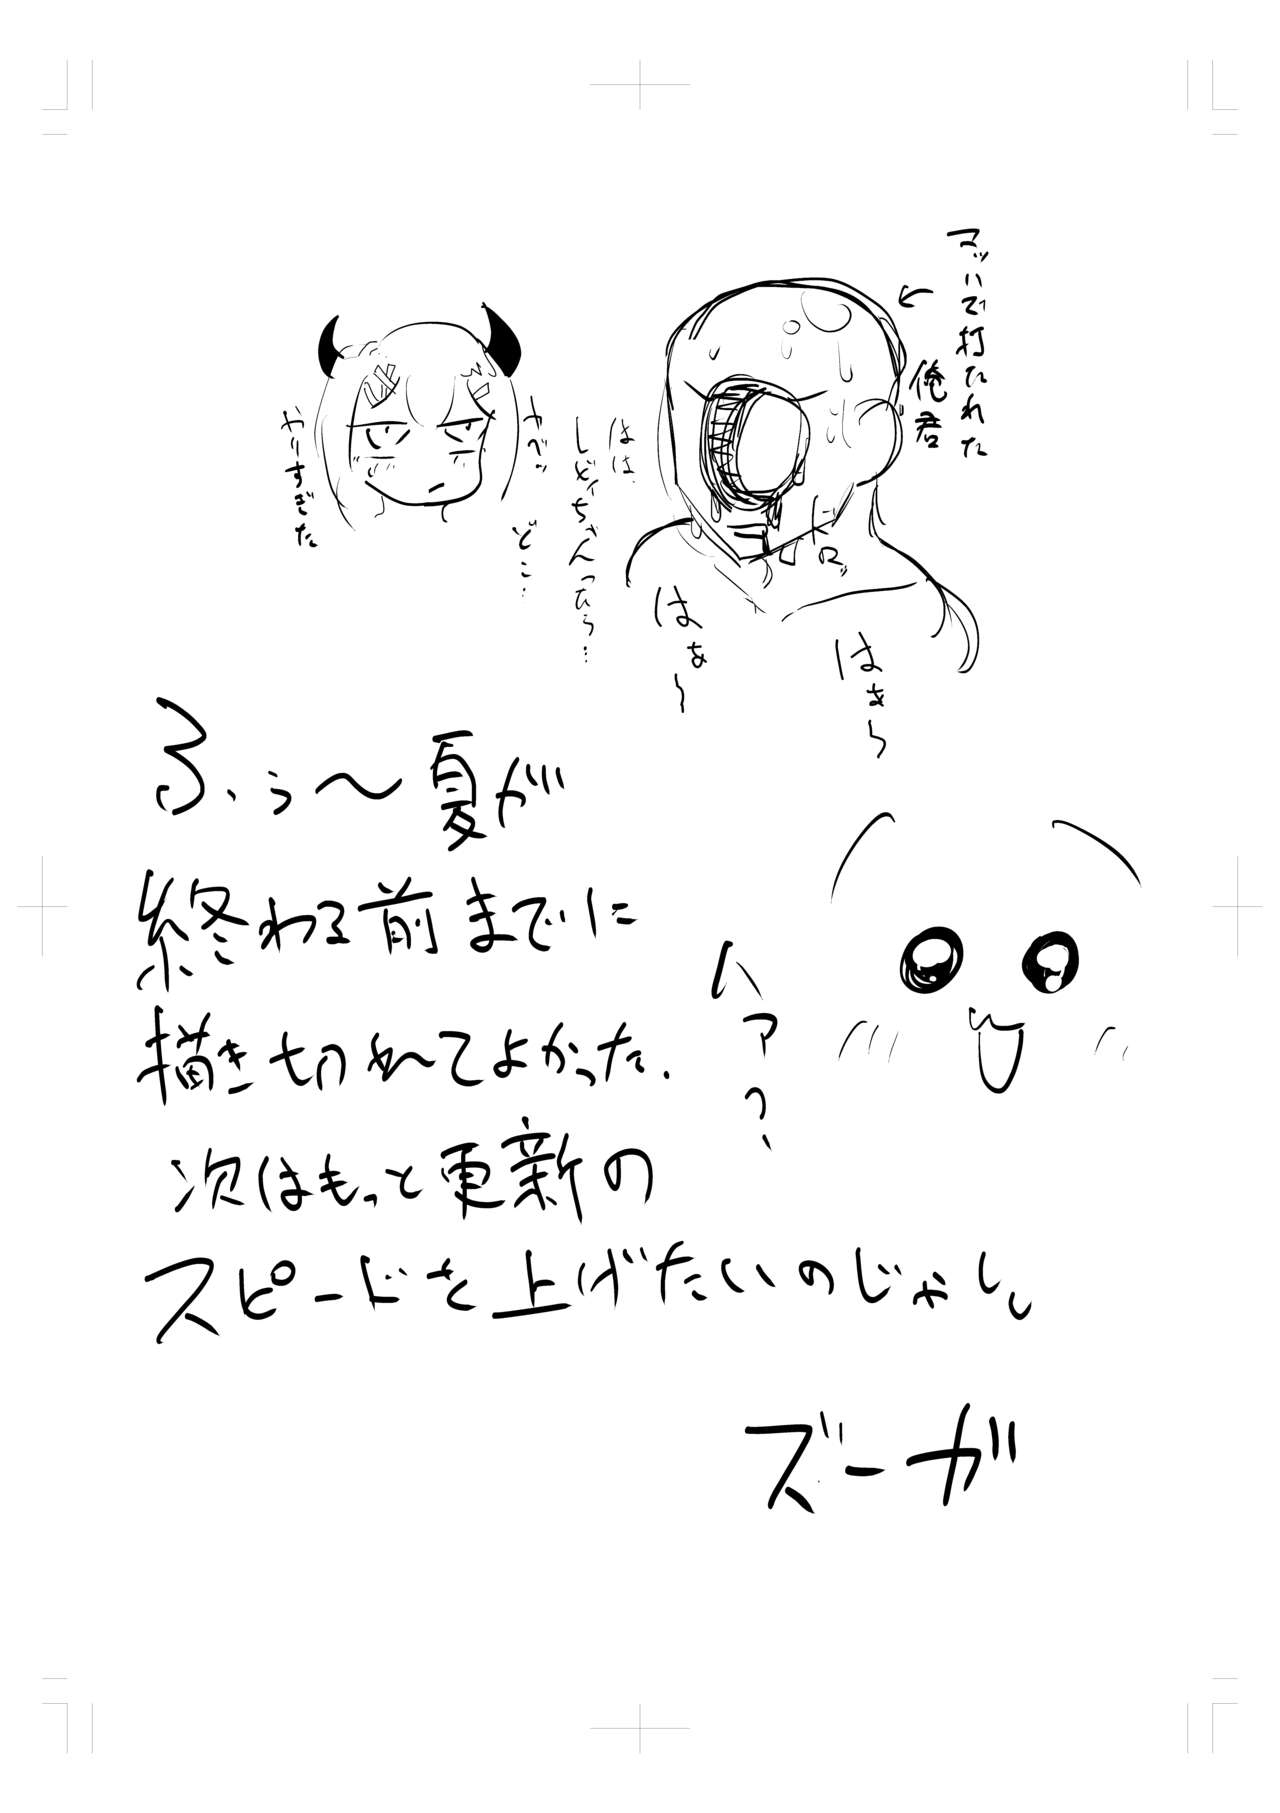 マッハで打たれた
俺君
はは、
しどいちゃんったら…
ヤベッ
どこ…
やりすぎた
ドロッ
はぁ〜
はぁ〜
ふぅ〜夏が
終わる前までに
描き切れてよかった。
次はもっと更新の
スピードを上げたいのじゃし。
ハァっ、
ズーガ